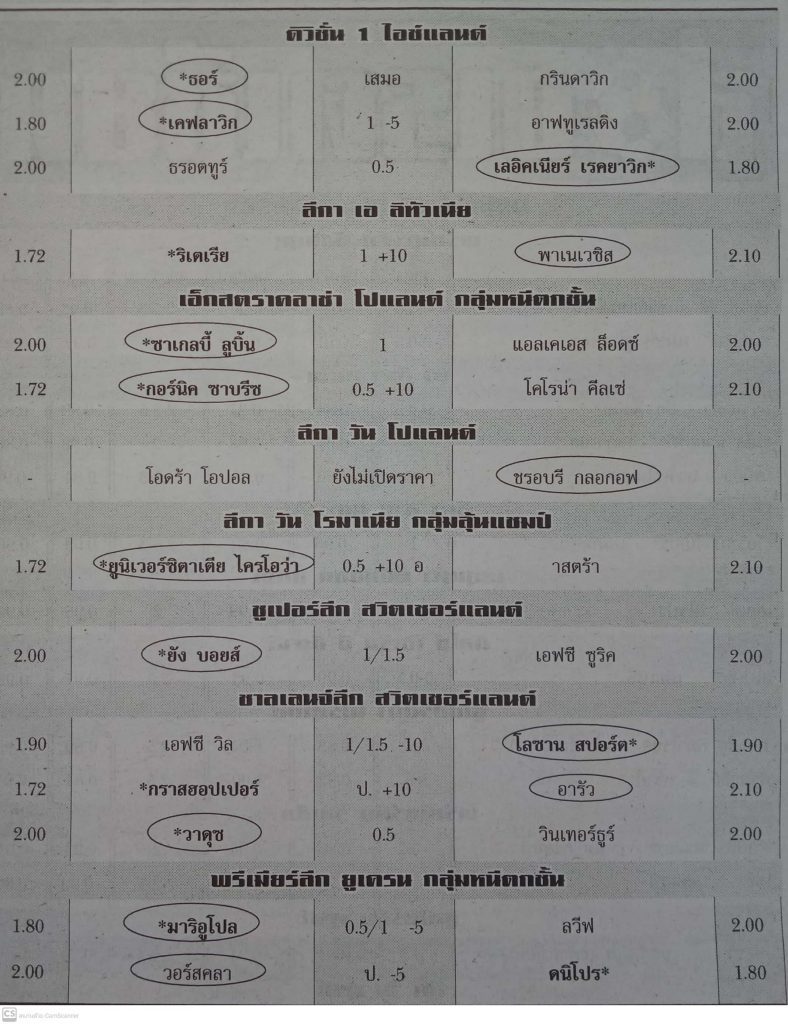 ดิวิชั่น 1 ไอซ์แลนด์
2.00 *ธอร์ เสมอ กรินดาวิก 2.00
1.80 *เคฟลาวิก 1 -5 อาฟทูเรลดิง 2.00
2.00 ธรอตทูร์ 0.5 เลอิคเนียร์ เรคยาวิก* 1.80
ลีกา เอ ลิทัวเนีย
1.72 *ริเตเรีย 1 +10 พาเนเวซิส 2.10
เอ็กสตราคลาซ่า โปแลนด์ กลุ่มหนีตกชั้น
2.00 *ซาเกลบี้ ลูบิ้น 1 แอลเคเอส ล็อดซ์ 2.00
1.72 *กอร์นิค ซาบรีซ 0.5 +10 โคโรน่า คีลเซ่ 2.10
ลีกา วัน โปแลนด์
- โอดร้า โอปอล ยังไม่เปิดราคา ชรอบรี กลอกอฟ -
ลีกา วัน โรมาเนีย กลุ่มลุ้นแชมป์
1.72 *ยูนิเวอร์ซิตาเตีย ไครโอว่า 0.5 +10 อ าสตร้า 2.10
ซูเปอร์ลีก สวิตเซอร์แลนด์
2.00 *ยัง บอยส์ 1/1.5 เอฟซี ซูริค 2.00
ชาลเลนจ์ลีก สวิตเซอร์แลนด์
1.90 เอฟซี วิล 1/1.5 -10 โลซาน สปอร์ต* 1.90
1.72 *กราสฮอปเปอร์ ป. +10 อารัว 2.10
2.00 *วาดุซ 0.5 วินเทอร์ธูร์ 2.00
พรีเมียร์ลีก ยูเครน กลุ่มหนีตกชั้น
1.80 *มาริอูโปล 0.5/1 -5 ลวีฟ 2.00
2.00 วอร์สคลา ป. -5 ดนิโปร* 1.80
CS สแกนด้วย CamScanner